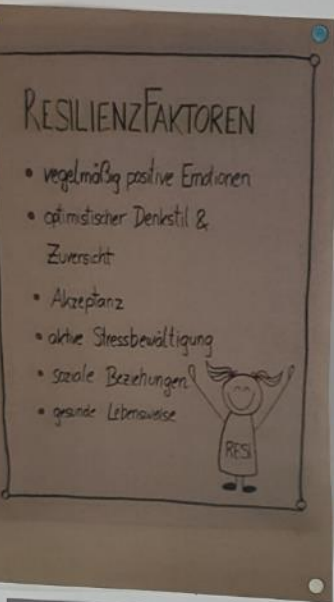 RESILIENZFAKTOREN
• regelmäßig positive Emotionen
• optimistischer Denkstil &
Zuversicht
• Akzeptanz
• aktive Stressbewältigung
• soziale Beziehungen
• gesunde Lebensweise
RESI